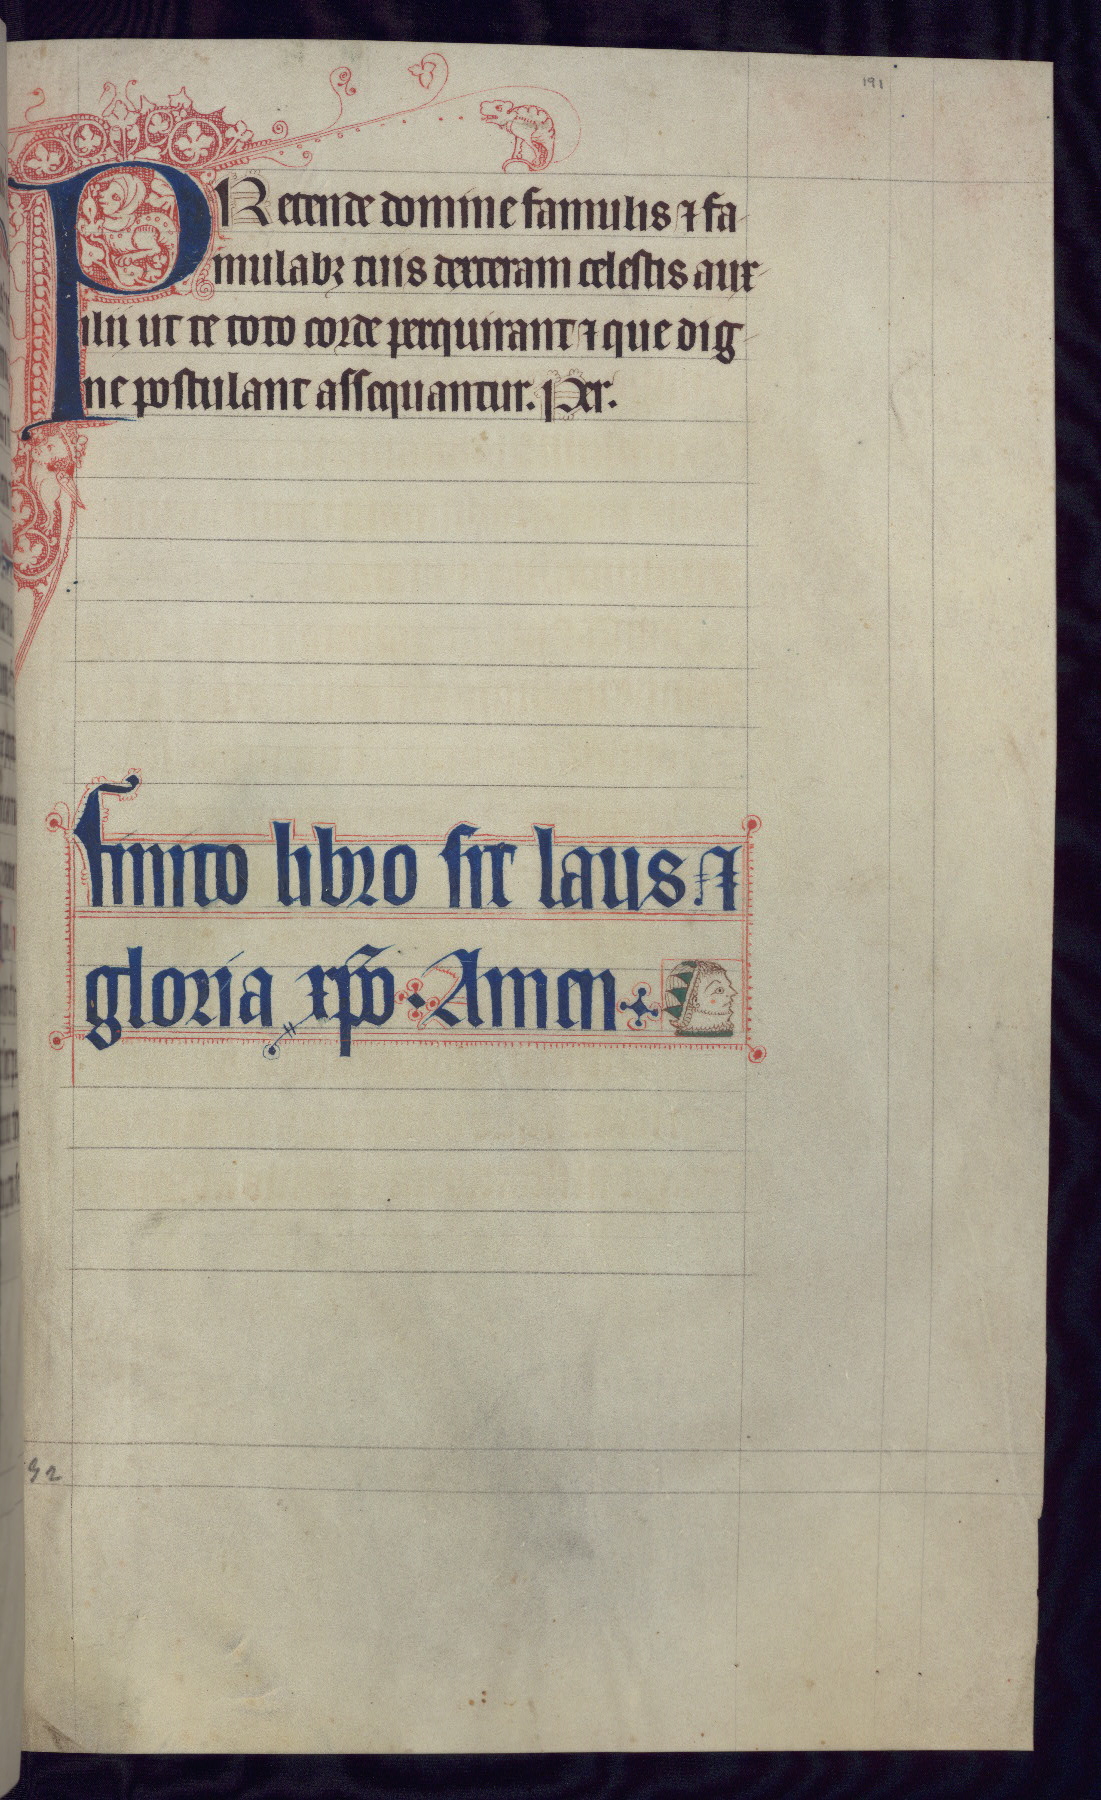 191
PRetende domine famulis ⁊ fa-
mulabꝫ tuis dexteram celestis aux-
ilii ut te toto corde perquirant ⁊ que dig-
ne postulant assequantur. Per.
Finito libro sit laus ⁊
gloria xp̄o. Amen
32